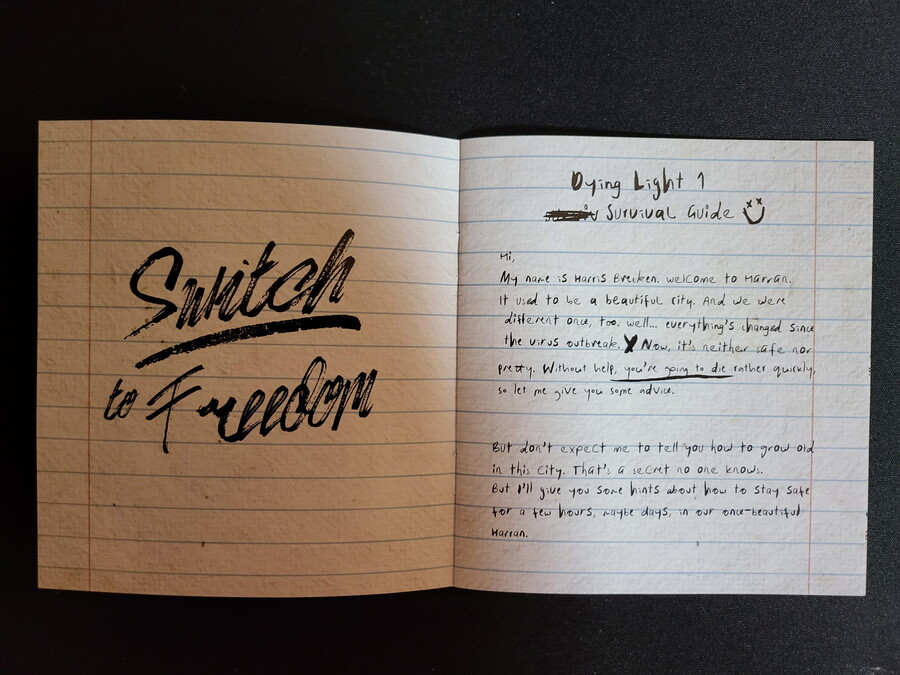 Switch
to Freedom
Dying Light 1
Survival Guide
Hi,
My name is Harris Brecken. welcome to Harran.
It used to be a beautiful city. And we were
different once, too. well... everything's changed since
the virus outbreak. X Now, it's neither safe nor
pretty. Without help, you're going to die rather quickly,
so let me give you some advice.
But don't expect me to tell you how to grow old
in this city. That's a secret no one knows.
But I'll give you some hints about how to stay safe
for a few hours, maybe days, in our once-beautiful
Harran.